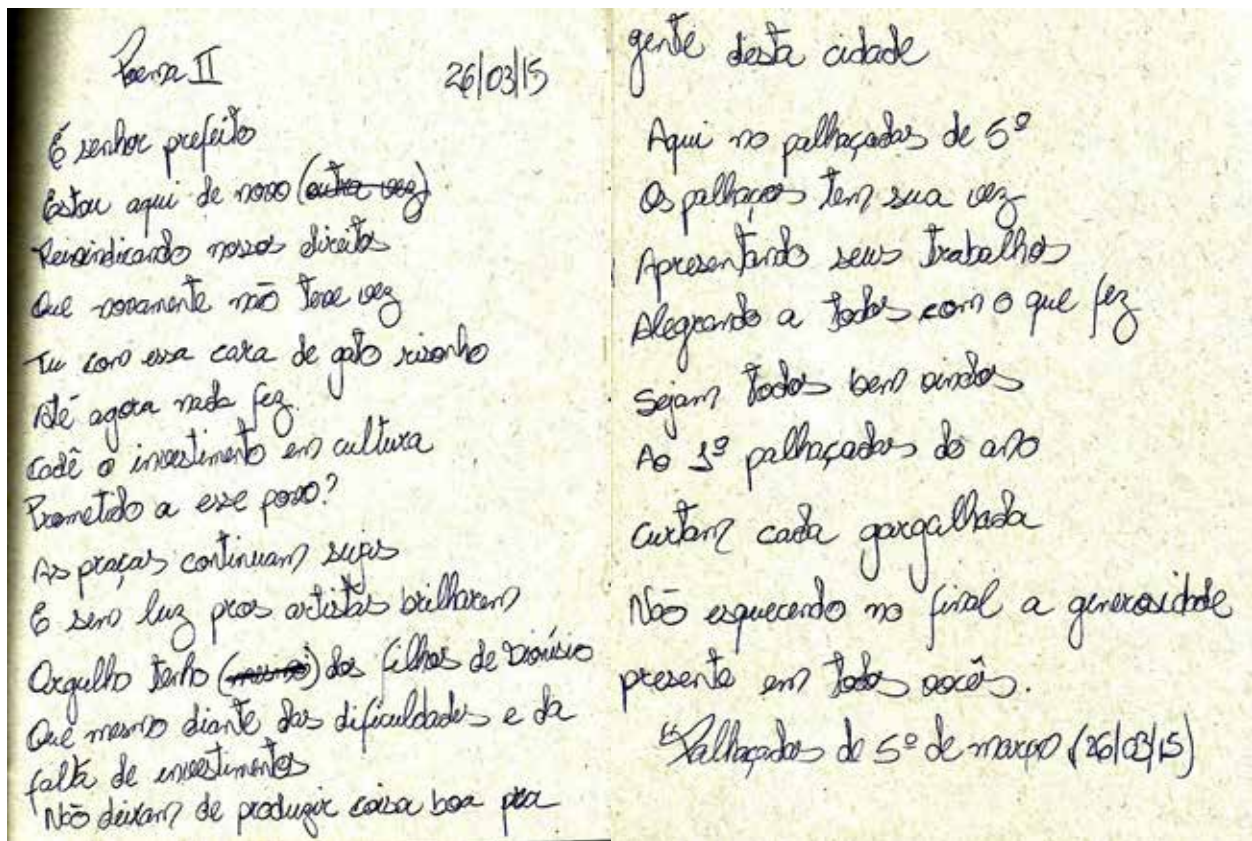 Poema II 26/03/15
É senhor prefeito
Estou aqui de novo (outra vez)
Reivindicando nossos direitos
Que novamente não teve vez
Tu com essa cara de gato risonho
Até agora nada fez
Cadê o investimento em cultura
Prometido a esse povo?
As praças continuam sujas
E sem luz pros artistas brilharem
Orgulho tenho (mesmo) dos filhos de Dionísio
Que mesmo diante das dificuldades e da
falta de investimentos
Não deixam de produzir coisa boa pra
gente desta cidade
Aqui no palhaçadas de 5ª
Os palhaços tem sua vez
Apresentando seus trabalhos
Alegrando a todos com o que fez
Sejam todos bem vindos
Ao 1º palhaçadas do ano
Curtam cada gargalhada
Não esquecendo no final a generosidade
presente em todos vocês.
Palhaçadas de 5ª de março (26/03/15)